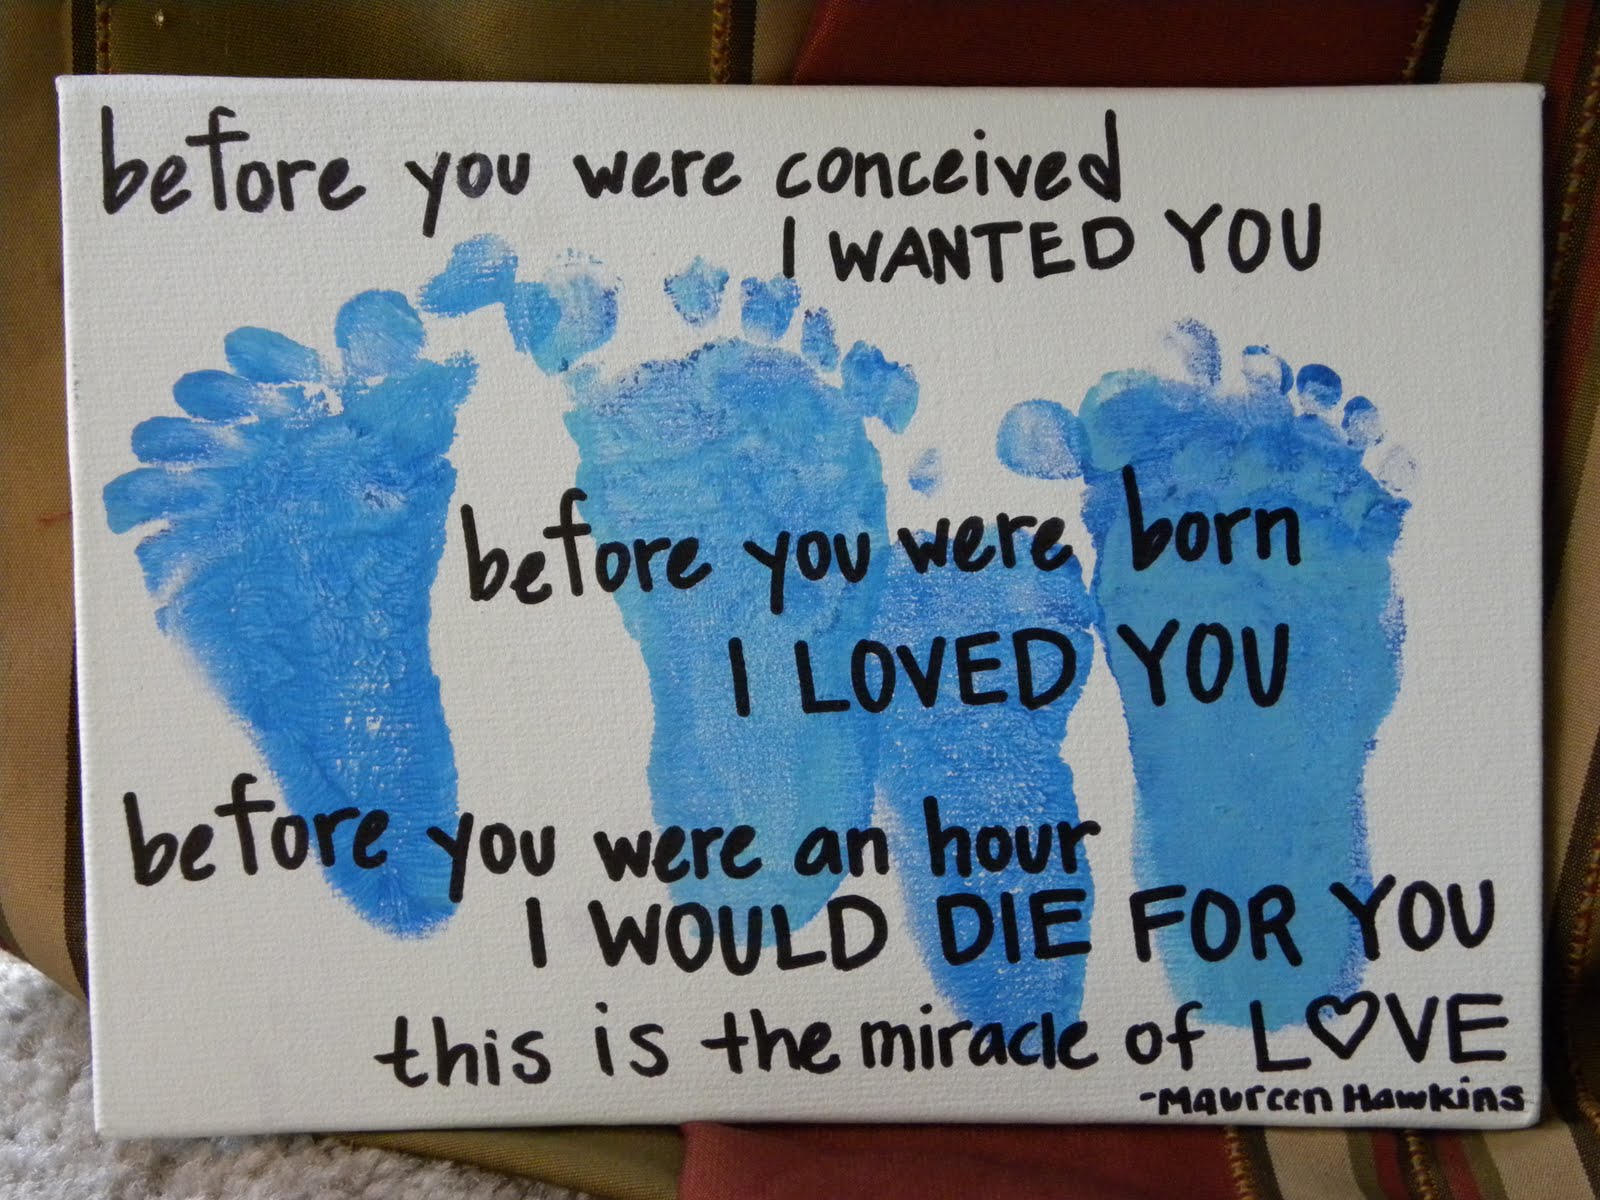 before you were conceived
I WANTED YOU
before you were born
I LOVED YOU
before you were an hour
I WOULD DIE FOR YOU
this is the miracle of L♡VE
-Maureen Hawkins